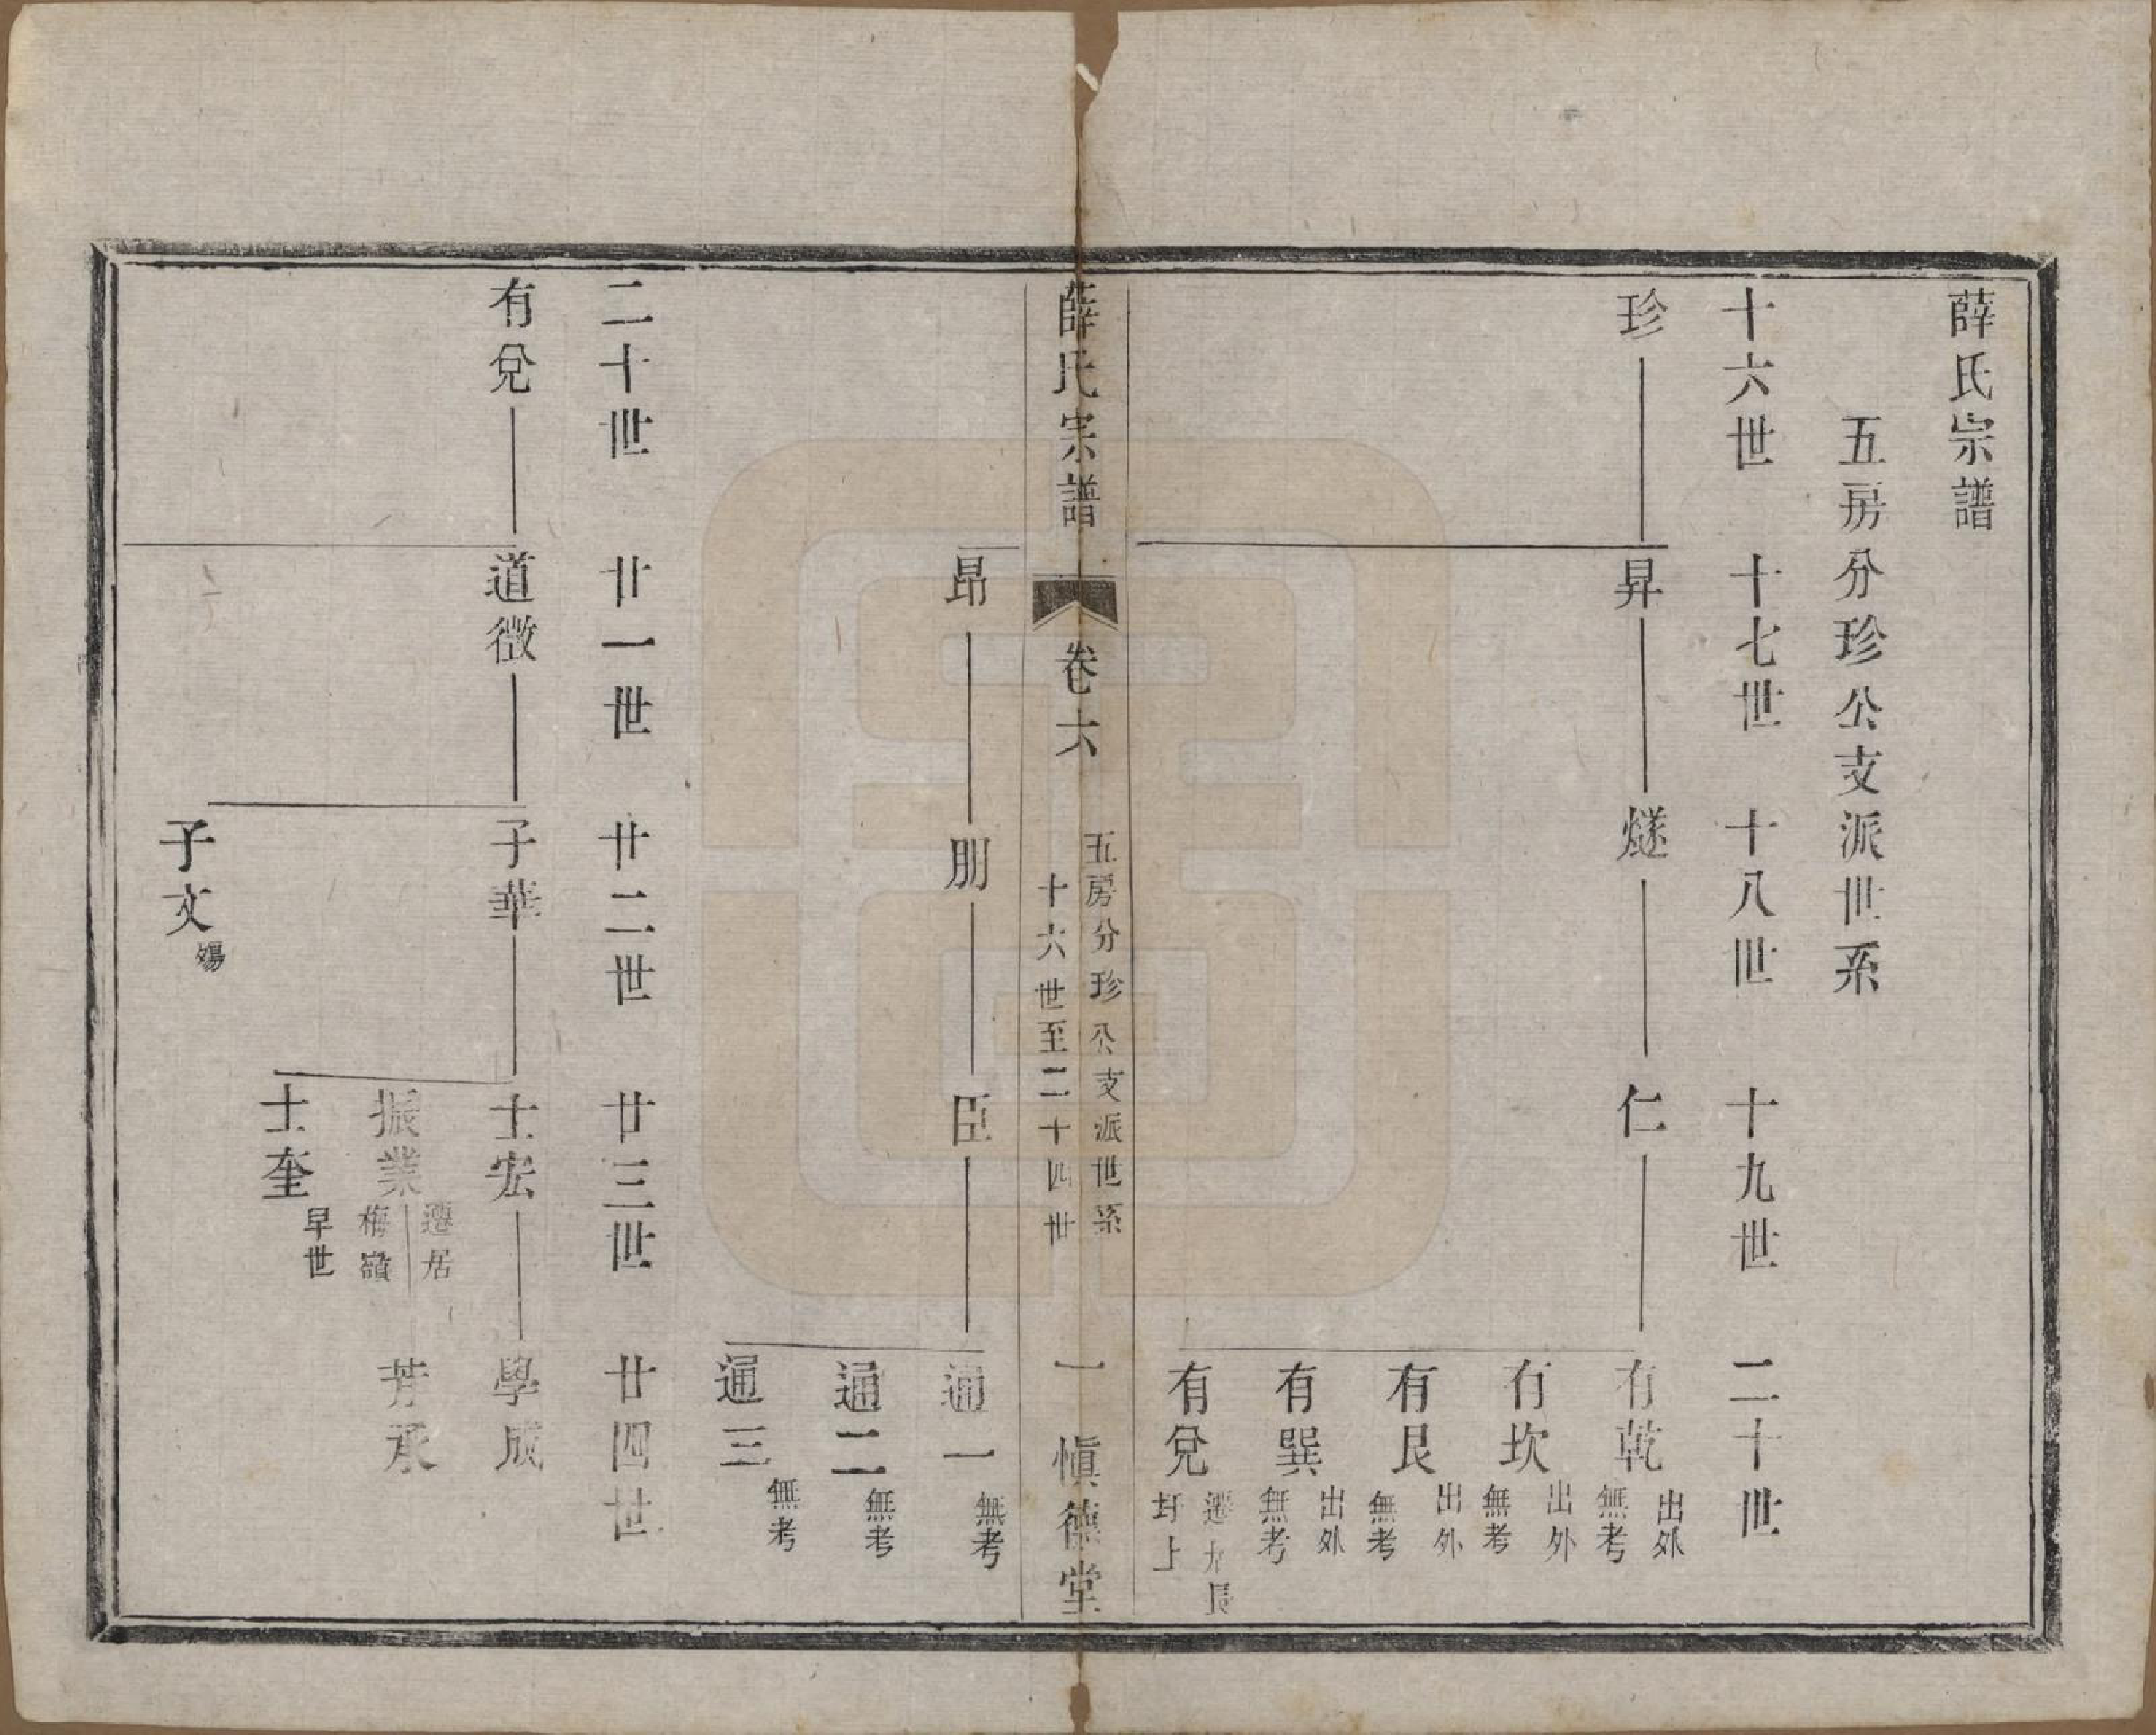 薛氏宗譜
五房分珍公支派世系
十六世 十七世 十八世 十九世 二十世
珍 昇 燧 仁 有乾 出外無考
有坎 出外無考
有艮 出外無考
有巽 出外無考
有兌 遷 圩上
薛氏宗譜 卷六 五房分珍公支派世系 十六世至二十四世 一 愼德堂
昂 朋 臣 通一 無考
通二 無考
通三 無考
二十世 廿一世 廿二世 廿三世 廿四世
有兌 道徵 子華 士宏 學成
振業 遷居梅嶺 芳承
士奎 早世
子文 殤